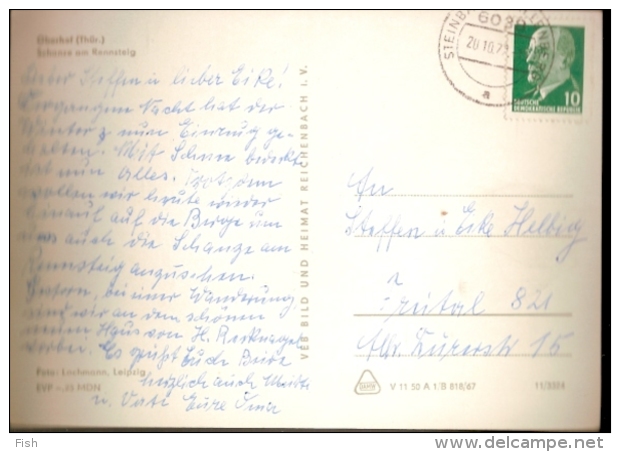 Oberhof (Thür.)
Schanze am Rennsteig
Lieber Steffen u lieber Eike!
Vergangene Nacht hat der
Winter nun Einzug ge-
halten. Mit Schnee bedeckt
ist nun Alles. Trotzdem
wollen wir heute wieder
hinauf auf die Berge um
uns auch die Schanze am
Rennsteig anzusehen.
Gestern, bei einer Wanderung
sind wir an dem schönen
neuen Haus von H. Recknagel
vorbei. Es grüßt Euch Beide
herzlich auch
u. Vati Eure Oma
Foto: Lachmann, Leipzig
EVP –.25 MDN
VEB BILD UND HEIMAT REICHENBACH I. V.
6030
20.10.72
a
10
DEUTSCHE
DEMOKRATISCHE REPUBLIK
An
Steffen u Eike Helbig
Freital 821
15
V 11 50 A 1/B 818/67
11/3354
Fish
www.delcampe.net